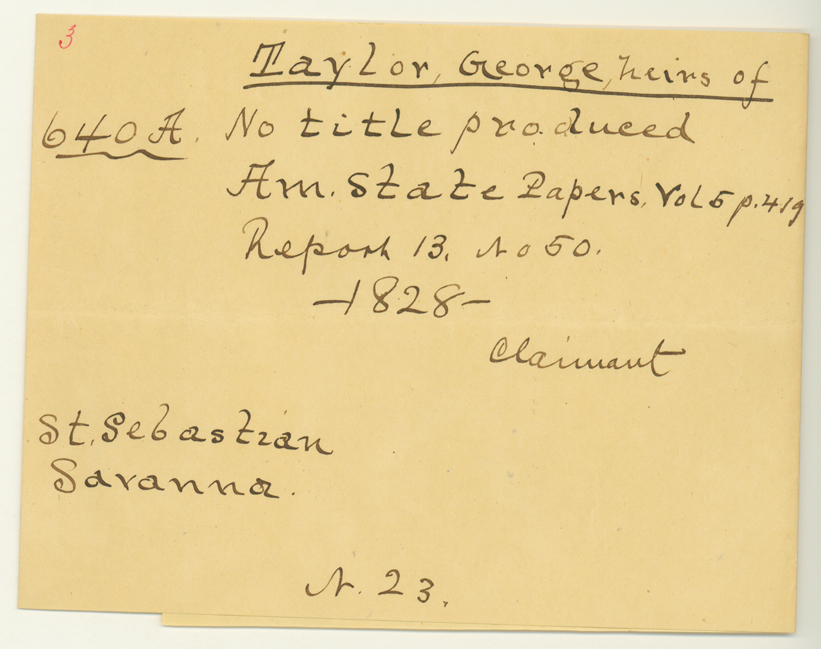 3
Taylor, George, heirs of
640 A. No title produced
Am. State Papers, Vol 5 p. 419
Report 13. No 50.
—1828—
Claimant
St. Sebastian
Savanna.
N. 23.